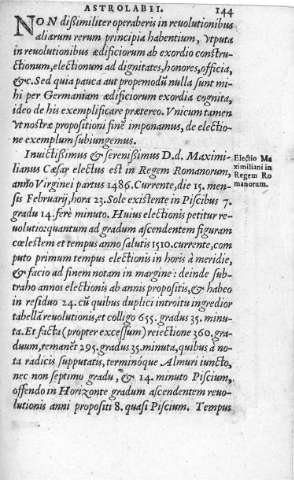 ASTROLABII. 144
NON dißimiliter operaberis in reuolutionibus
aliarum rerum principia habentium, vtputa
in reuolutionibus ædificiorum ab exordio constru-
ctionum, electionum ad dignitates, honores, officia,
&c. Sed quia pauca aut propemodũ nulla sunt mi-
hi per Germaniam ædificiorum exordia cognita,
ideo de his exemplificare prætereo. Vnicum tamen
vt nostræ propositioni finẽ imponamus, de electio-
ne exemplum subiungemus.
Inuictißimus & serenißimus D.d. Maximi-
lianus Cæsar electus est in Regem Romanorum,
anno Virginei partus 1486. Currente, die 15. men-
sis Februarij, hora 23. Sole existente in Piscibus 7.
gradu 14. ferè minuto. Huius electionis petitur re-
uolutio: quantum ad gradum ascendentem figuram
cœlestem et tempus anno salutis 1510. currente, com
puto primum tempus electionis in horis à meridie,
& facio ad finem notam in margine: deinde sub-
traho annos electionis ab annis propositis, & habeo
in residuo 24. cũ quibus duplici introitu ingredior
tabellã reuolutionis, et colligo 655. gradus 35. minu-
ta. Et facta (propter excessum) reiectione 360. gra-
duum, remanẽt 295. gradus 35. minuta, quibus à no
ta radicis supputatis, terminóque Almuri iuncto,
nec non septimo gradu, & 14. minuto Piscium,
offendo in Horizonte gradum ascendentem reuo-
lutionis anni propositi 8. quasi Piscium. Tempus
Electio Ma
ximiliani in
Regem Ro
manorum.